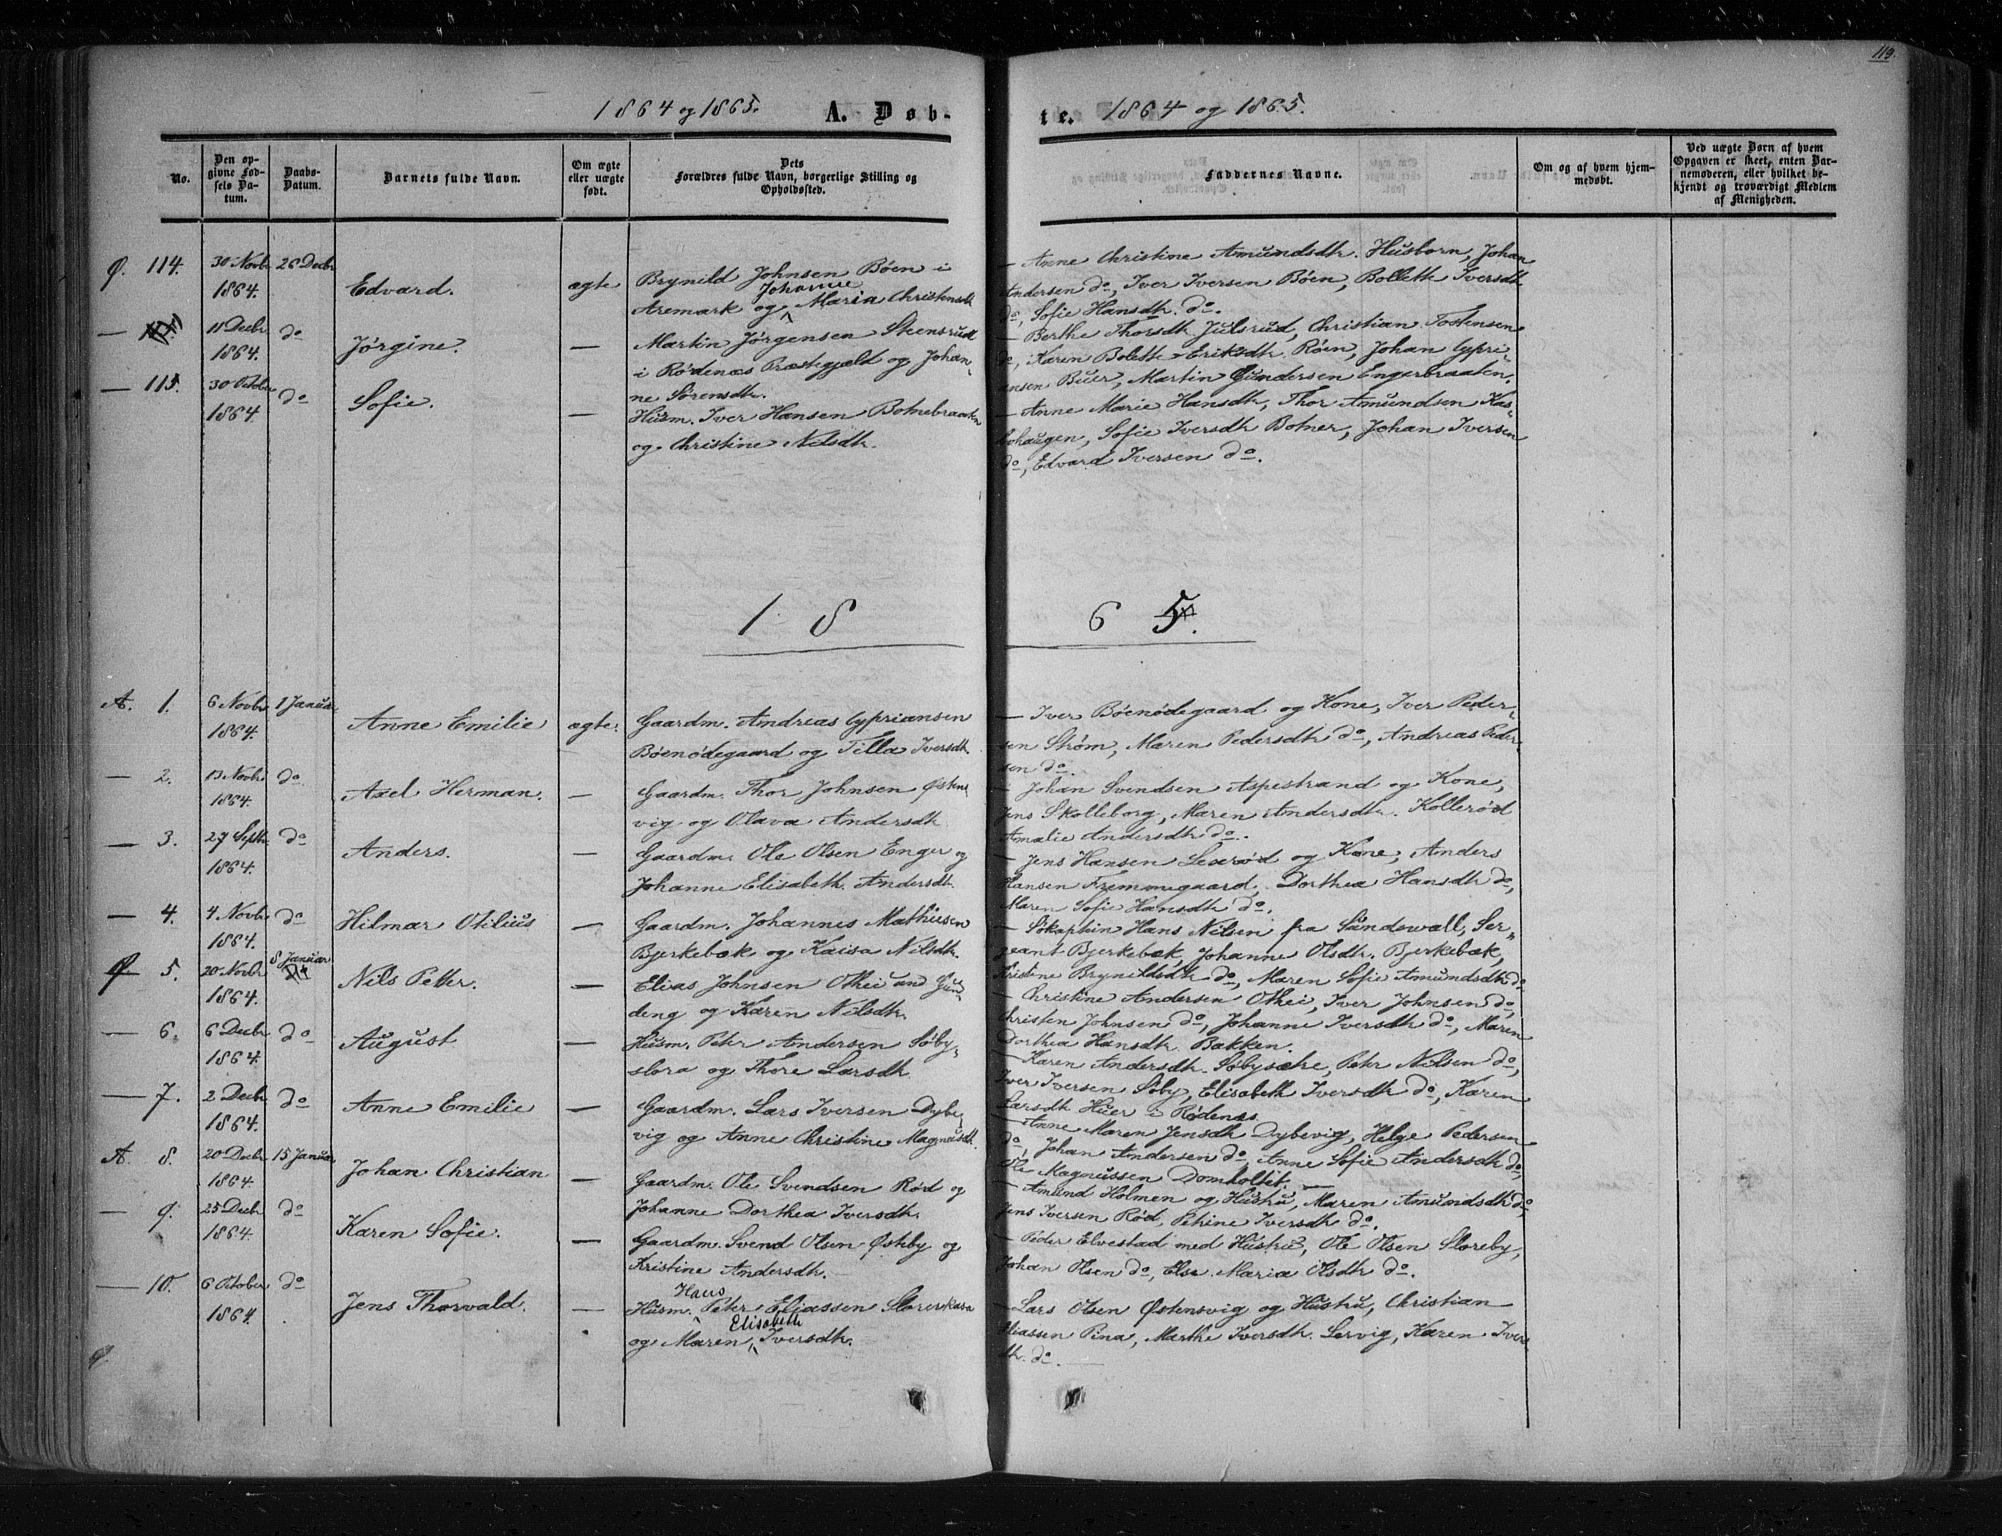 119.
1864 og 1865. A. Døb-
te. 1864 og 1865.
No.
Den op-
givne Fød-
sels Da-
tum.
Daabs-
Datum.
Barnets fulde Navn.
Om ægte
eller uægte
født.
Dets
Forældres fulde Navn, borgerlige Stilling og
Opholdssted.
Faddernes Navne.
Om og af hvem hjem-
medøbt.
Ved uægte Børn af hvem
Opgaven er skeet, enten Bar-
nemoderen, eller hvilket be-
kjendt og troværdigt Medlem
af Menigheden.
Ø. 114. 30 Novbr 26 Decbr
1864. Edvard. ægte
Brynild Johnsen Bøen i
Johanne
Aremark og Maria Christensdtr
— Anne Christine Amundsdtr. Husborn, Johan
Andersen do, Iver Iversen Bøen, Bollette Iversdtr
do, Sofie Hansdtr. do.
— 11 Decbr do
1864. Jørgine. —
Martin Jørgensen Skensrud
i Rødenæs Præstegjæld og Johan-
ne Sørensdtr.
— Berthe Thorsdtr Julsrud, Christian Tostensen
do, Karen Bolette Eriksdtr. Røen, Johan Cypri-
ansen Buer, Martin Gundersen Engerbraaten.
— 115. 30 October do
1864 Sofie. —
Husm. Iver Hansen Botnebraaten
og Christine Nilsdtr.
— Anne Marie Hansdtr, Thor Amundsen Kas-
bohaugen, Sofie Iversdtr Botner, Johan Iversen
do, Edvard Iversen do.
1 8 6 5.
A. 1. 6 Novbr 1 Januar
1864. Anne Emilie ægte.
Gaardm. Andreas Cypriansen
Bøenødegaard og Tilla Iversdtr.
— Iver Bøenødegaard og Kone, Iver Peder-
sen Strøm, Maren Pedersdtr do, Andreas Peder-
sen do.
— 2. 13 Novbr do
1864. Axel Herman. —
Gaardm. Thor Johnsen Østens-
vig og Olava Andersdtr.
— Johan Svendsen Aspestrand og Kone,
Jens Skolleborg, Maren Andersdtr. Kollerød
Amalie Andersdtr do.
— 3. 27 Septbr do
1864. Anders. —
Gaardm. Ole Olsen Enger og
Johanne Elisabeth Andersdtr.
— Jens Hansen Leserød og Kone, Anders
Hansen Fremmegaard, Dorthea Hansdtr do,
Maren Sofie Hansdtr do.
— 4. 4 Novbr do
1864. Hilmar Otilius —
Gaardm. Johannes Mathisen
Bjerkebæk og Kaisa Nilsdtr.
— Søkaptein Hans Nilsen fra Sundswall, Ser-
geant Bjerkebæk, Johanne Olsdtr. Bjerkebæk,
Kristine Brynildsdtr do, Maren Sofie Amundsdtr do
Ø 5. 20 Novbr 8 Januar
1864. Nils Petter. —
Elias Johnsen Othei und Gun-
deng og Karen Nilsdtr.
— Christine Andersen Othei, Iver Johnsen do,
Christen Johnsen do, Johanne Iversdtr do, Maren
Dorthea Hansdtr. Bakken.
— 6. 6 Decbr do
1864. August —
Husm. Petr Andersen Søby-
slora og Thore Larsdtr
— Karen Andersdtr. Søbysæthe, Petr Nilsen do,
Iver Iversen Søby, Elisabeth Iversdtr do, Karen
Larsdtr Huer i Rødenæs
— 7. 2 Decbr do
1864. Anne Emilie —
Gaardm. Lars Iversen Dybe-
vig og Anne Christine Magnusdtr.
— Anne Maren Jensdtr Dybevig, Helge Pedersen
do, Johan Andersen do, Anne Sofie Andersdtr do,
Ole Magnussen Domholtet. —
A. 8. 20 Decbr 15 Januar
1864. Johan Christian
Gaardm. Ole Svendsen Rød og
Johanne Dorthea Iversdtr.
— Amund Holmen og Hustru, Maren Amundsdtr do,
Jens Iversen Rød, Petrine Iversdtr do.
— 9. 25 Decbr do
1864. Karen Sofie. —
Gaardm. Svend Olsen Østeby og
Kristine Andersdtr.
— Peder Elvestad med Hustru, Ole Olsen Sloreby,
Johan Olsen do, Else Maria Olsdtr do.
— 10. 6 October do
1864. Jens Thorvald. —
Hans
Husm. Petr Eliassen
Elisabeth
og Maren Iversdtr.
— Lars Olsen Østensvig og Hustru, Christian
Eliassen Pina, Marthe Iversdtr. Lervig, Karen Ivers
dtr. do —